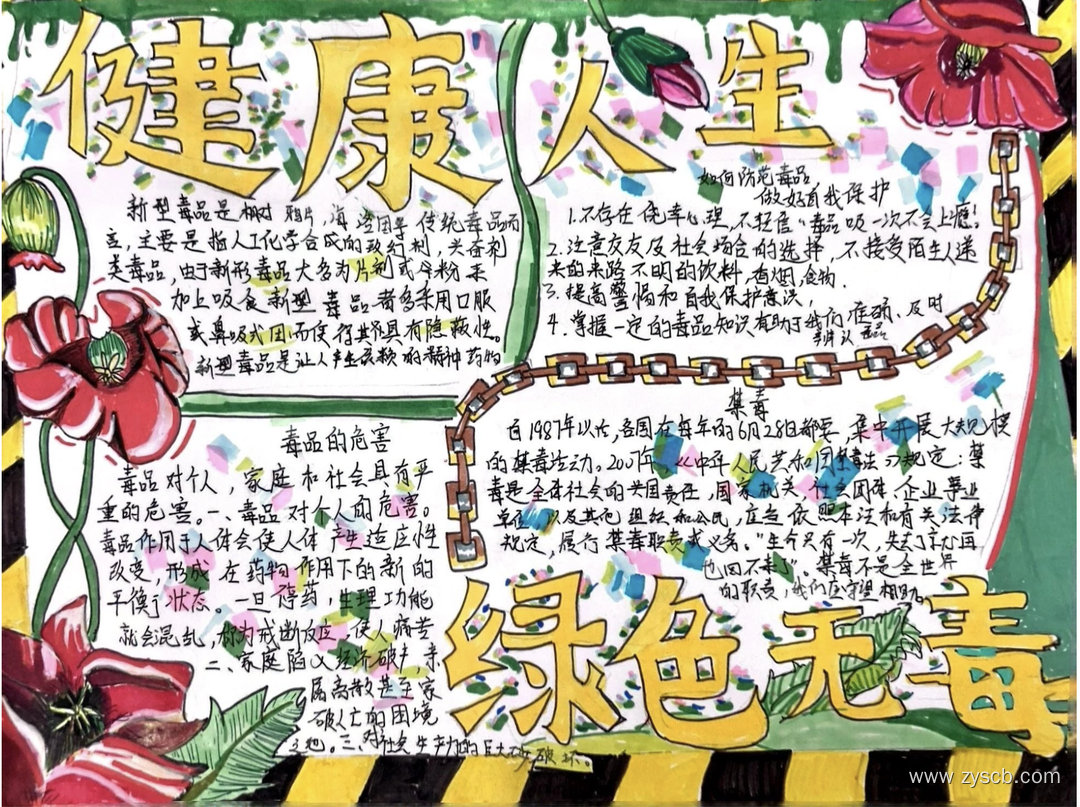 健康人生
新型毒品是相对鸦片、海洛因等传统毒品而
言,主要是指人工化学合成的致幻剂,兴奋剂
类毒品,由于新形毒品大多为片剂或 粉末
加上吸食新型毒品者多采用口服
或鼻吸式因而使得其具有隐蔽性。
新型毒品是让人产生 的精神药物
如何防范毒品
做好自我保护
1.不存在侥幸心理,不轻信“毒品吸一次不会上瘾!
2.注意交友及社会场合的选择,不接受陌生人递
来的来路不明的饮料,香烟,食物.
3.提高警惕和自我保护意识,
4.掌握一定的毒品知识有助于我们准确、及时
辨认毒品
毒品的危害
毒品对个人,家庭和社会具有严
重的危害。一、毒品对个人的危害。
毒品作用于人体会使人体产生适应性
改变,形成在药物作用下的新的
平衡 状态。一旦停药,生理功能
就会混乱,称为戒断反应,使人痛苦
二、家庭陷 经济破产,亲
属离散甚至家
破人亡的困境
三、对社会生产力的巨大 破坏。
禁毒
自1987年以 ,各国在每年的6月28日都要,集中开展大规模
的禁毒活动。2007年,《中华人民共和国禁毒法》规定:禁
毒是全体社会的共同责任,国家机关、社会团体、企业事业
单位,以及其他组织和公民,应当依照本法和有关法律
规定,履行禁毒职责或义务。“生命只有一次,失去了就再
也回不来了”。禁毒不是全世界
的职责,我们应守望相助。
绿色无毒
www.zyscb.com